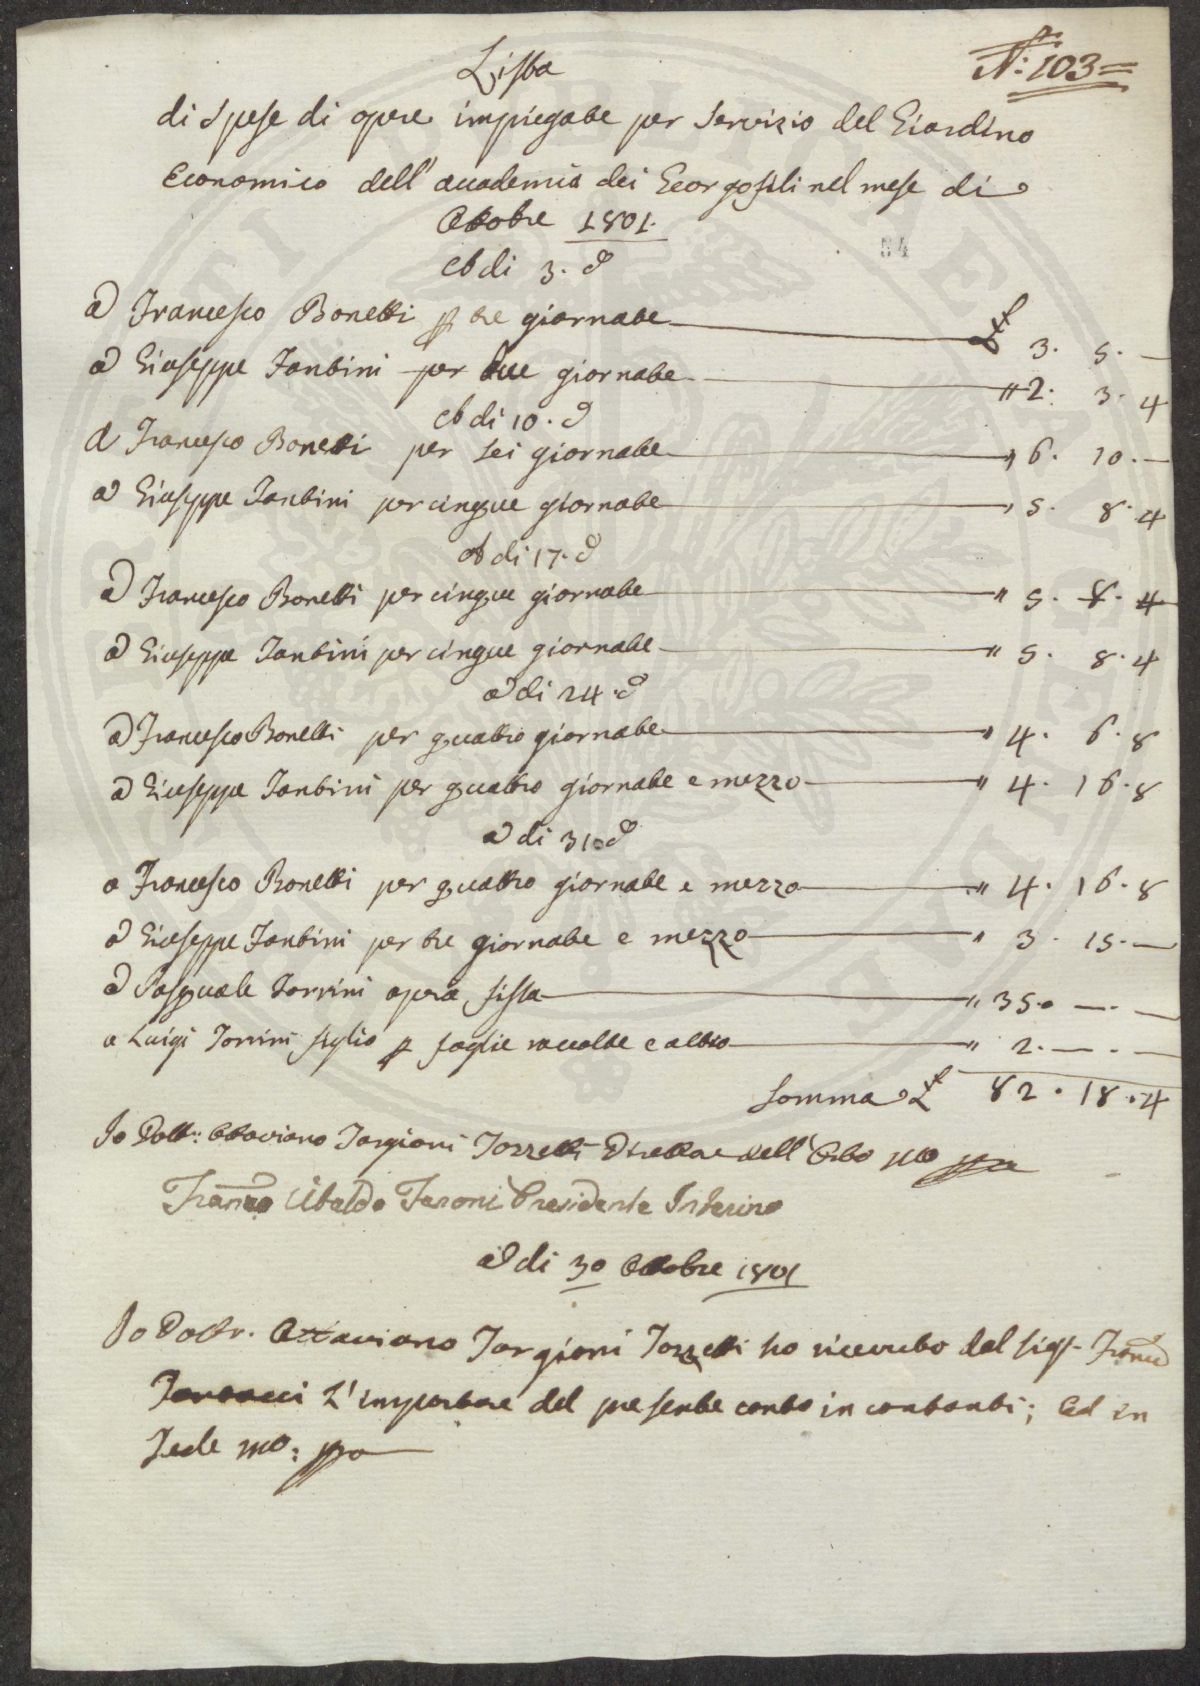 N.° 103 =
Lista
di Spese di opere impiegate per Servizio del Giardino
Economico dell'accademia dei Georgofili nel mese di
Ottobre 1801.
54
A di 3. d.°
a Francesco Bonetti p tre giornate £ 3. 5. —
a Giuseppe Fantini per due giornate " 2. 3. 4
A di 10. d.°
a Francesco Bonetti per sei giornate " 6. 10. —
a Giuseppe Fantini per cinque giornate " 5. 8. 4
A di 17. d.°
a Francesco Bonetti per cinque giornate " 5. 8. 4
a Giuseppe Fantini per cinque giornate " 5. 8. 4
a di 24. d.°
a Francesco Bonetti per quattro giornate " 4. 6. 8
a Giuseppe Fantini per quattro giornate e mezzo " 4. 16. 8
a di 31. d.°
a Francesco Bonetti per quattro giornate e mezzo " 4. 16. 8
a Giuseppe Fantini per tre giornate e mezzo " 3. 15. —
a Pasquale Torrini opera fissa " 35. — . —
a Luigi Torrini figlio p foglie raccolte e altro " 2. — . —
Somma £ 82. 18. 4
Io Dott: Ottaviano Targioni Tozzetti Direttore dell'Orto mo ppa
Franco Ubaldo Feroni Presidente Interino
a di 30 Ottobre 1801
Io Dottr. Ottaviano Targioni Tozzetti ho ricevuto dal Sigr. Franco
L'importare del presente conto in contanti; Ed in
Fede mo: ppa